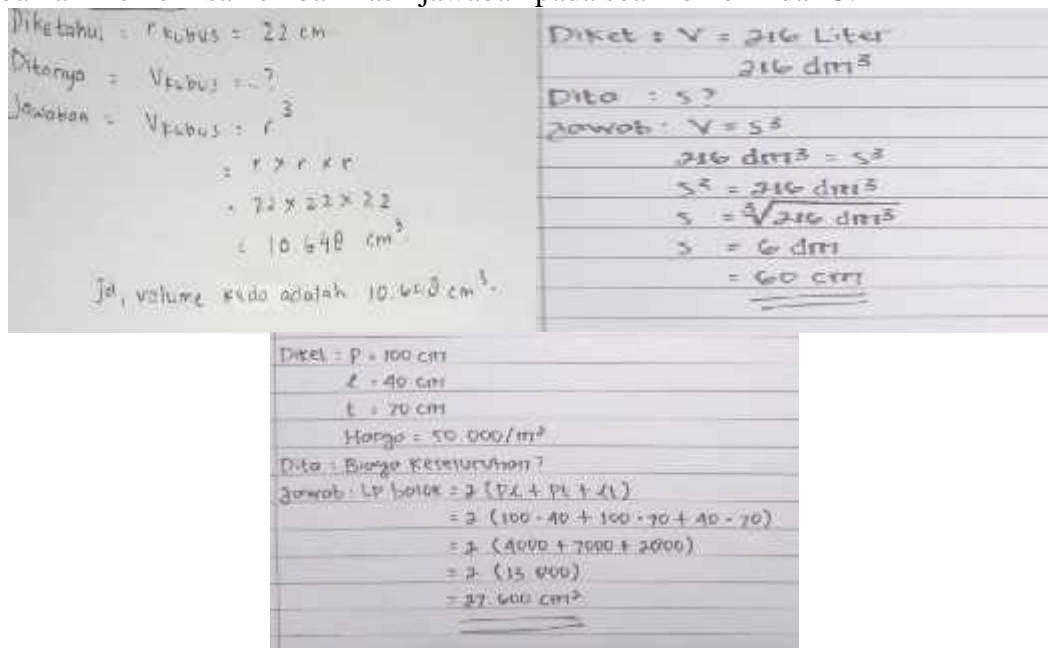 jawaban pada soal
Diketahui : r kubus = 22 cm
Ditanya = Vkubus = ..?
Jawaban = Vkubus : r³
= r × r × r
= 22 × 22 × 22
= 10.648 cm³.
Jd, volume kado adalah 10.648 cm³.
Diket : V = 216 Liter
216 dm³
Dita : s ?
Jawab : V = s³
216 dm³ = s³
s³ = 216 dm³
s = ³√216 dm³
s = 6 dm
= 60 cm
Diket : P = 100 cm
l = 40 cm
t = 70 cm
Harga = 50.000/m²
Dita : Biaya Keseluruhan ?
Jawab : LP balok = 2 (Pl + Pt + lt)
= 2 (100 · 40 + 100 · 70 + 40 · 70)
= 2 (4000 + 7000 + 2800)
= 2 (13 800)
= 27.600 cm²